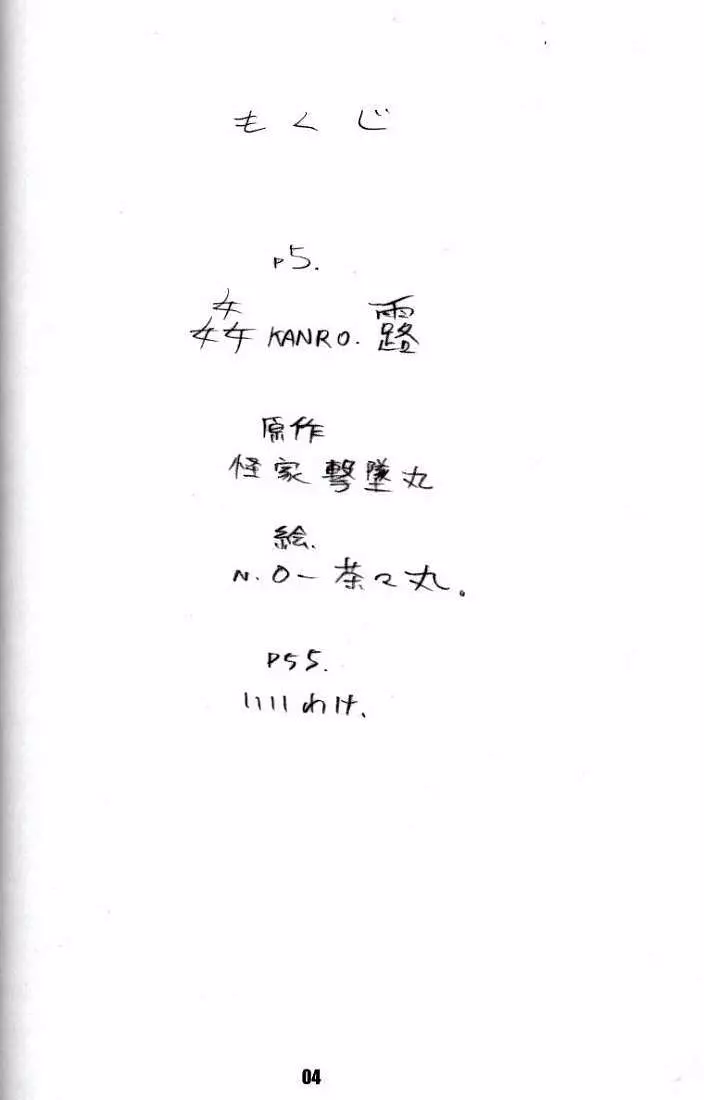 もくじ
P5.
姦 KANRO. 露
原作
怪家撃墜丸
絵.
N.O-茶々丸。
P55.
いいわけ.
04